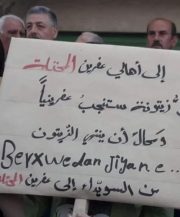 إلى أهالي عفرين المحتلة
كل زيتونة ستنجب عفرينياً
ومحال أن ينتهي الزيتون
Berxwedan Jiyane..
من السويداء إلى عفرين المحتلة